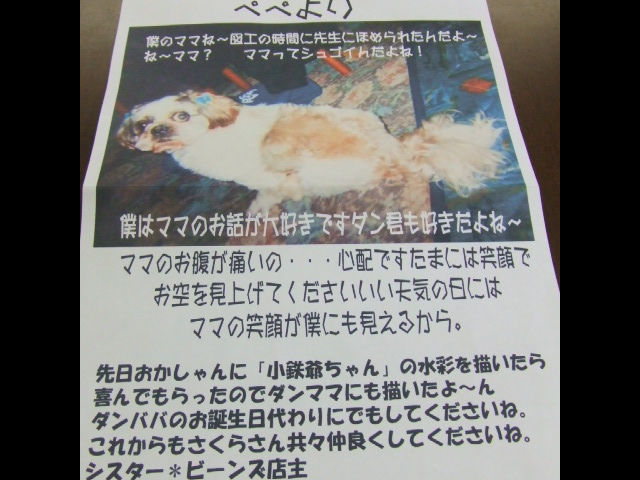 ペペより
僕のママね～図工の時間に先生にほめられたんだよ～
ね～ママ？　ママってシュゴイんだよね！
僕はママのお話が大好きですダン君も好きだよね～
ママのお腹が痛いの・・・心配ですたまには笑顔で
お空を見上げてくださいいい天気の日には
ママの笑顔が僕にも見えるから。
先日おかしゃんに「小鉄爺ちゃん」の水彩を描いたら
喜んでもらったのでダンママにも描いたよ～ん
ダンババのお誕生日代わりにでもしてくださいね。
これからもさくらさん共々仲良くしてくださいね。
シスター＊ビーンズ店主